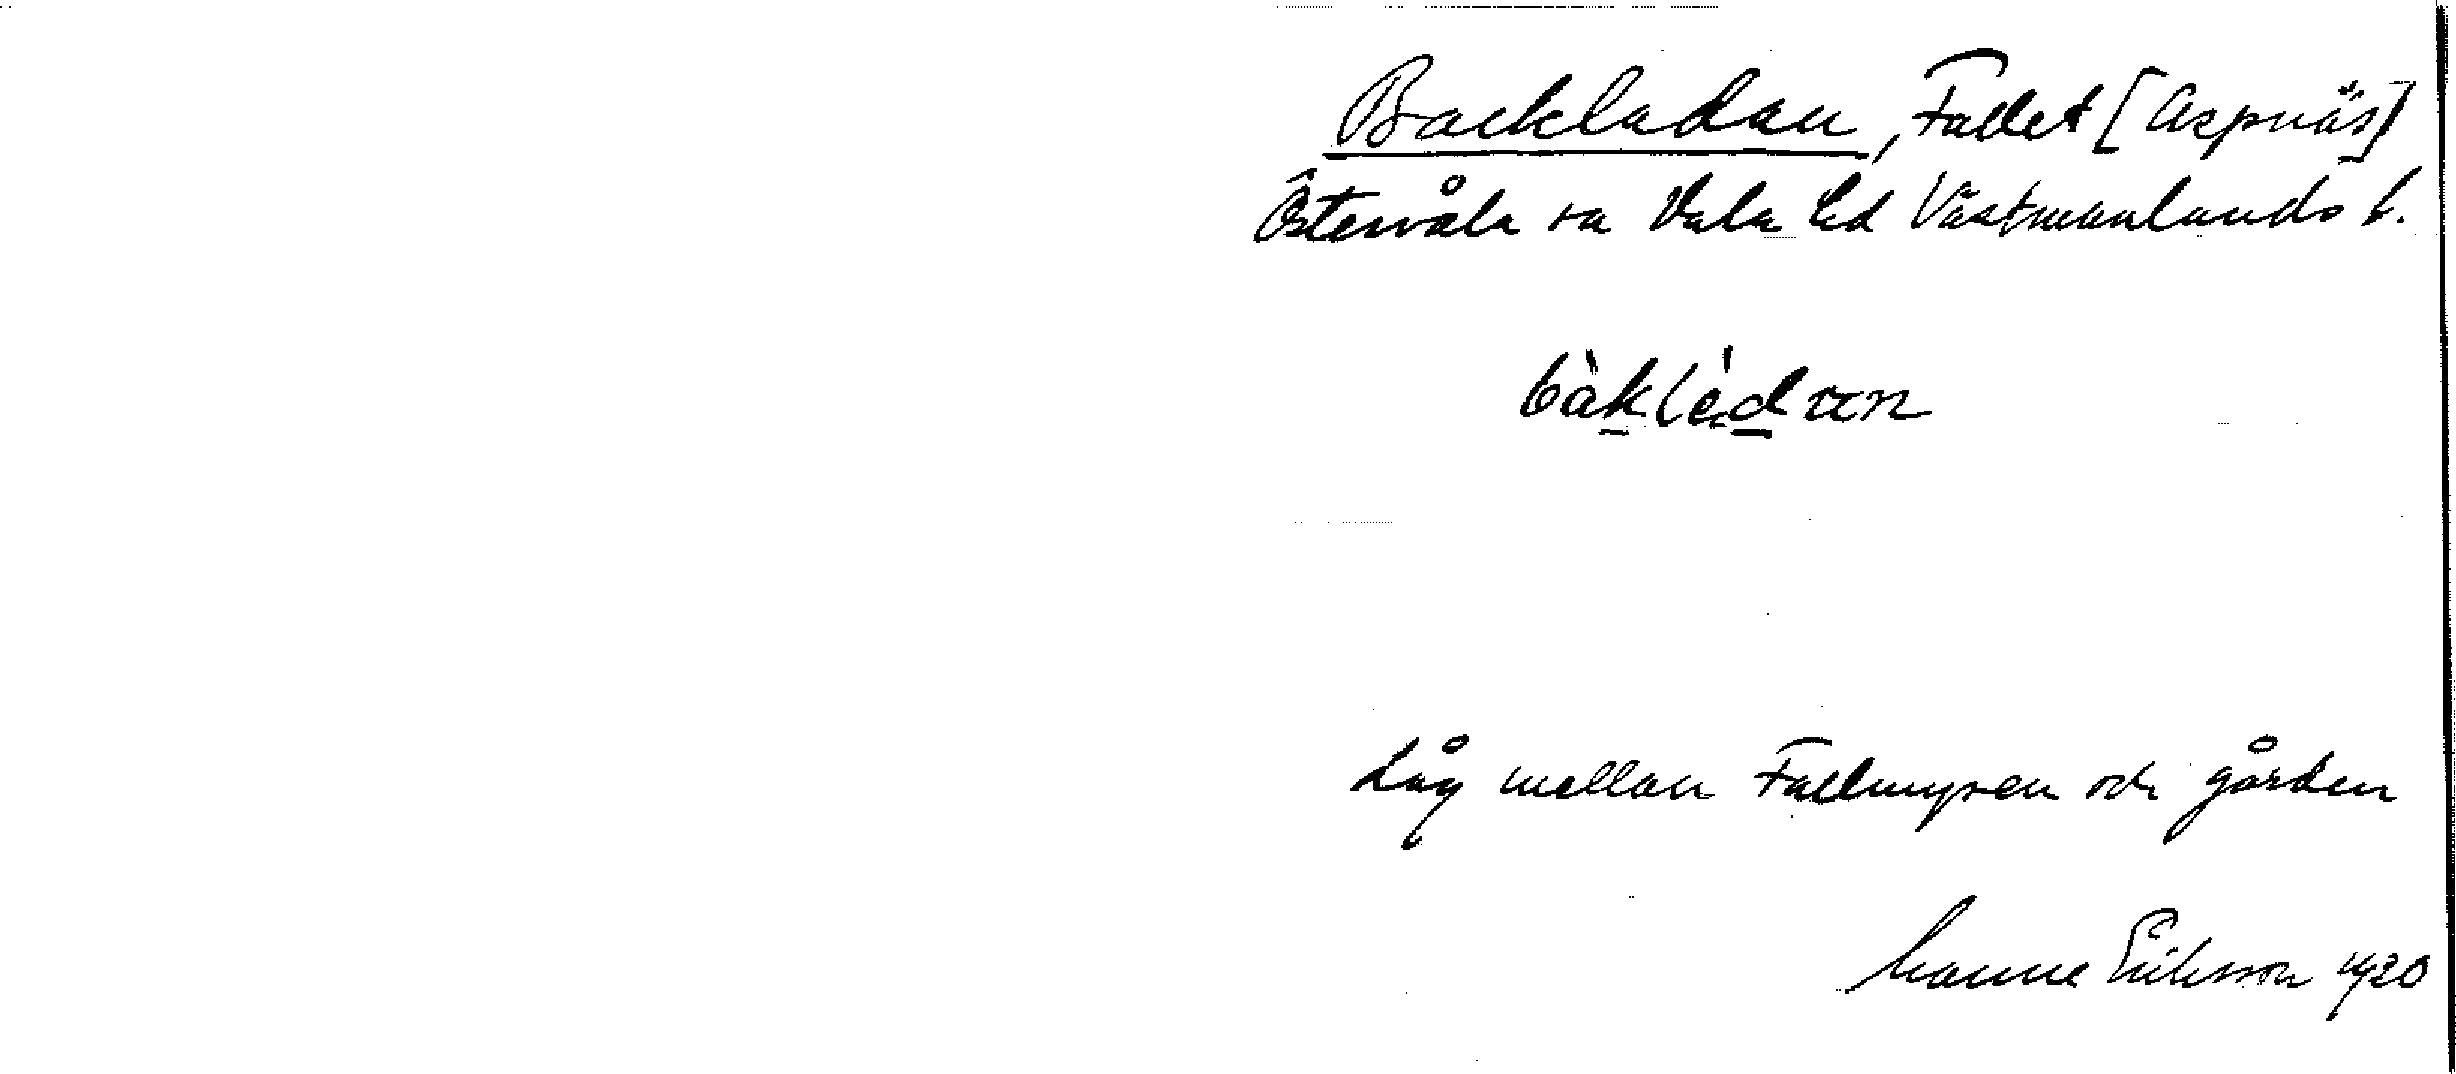 Backladan, Fallet [Aspnäs]
Östervåla sn Vala hd Västmanlands l.
bàklàdan
Låg mellan Fallmyren och gården
Manne Eriksson 1930